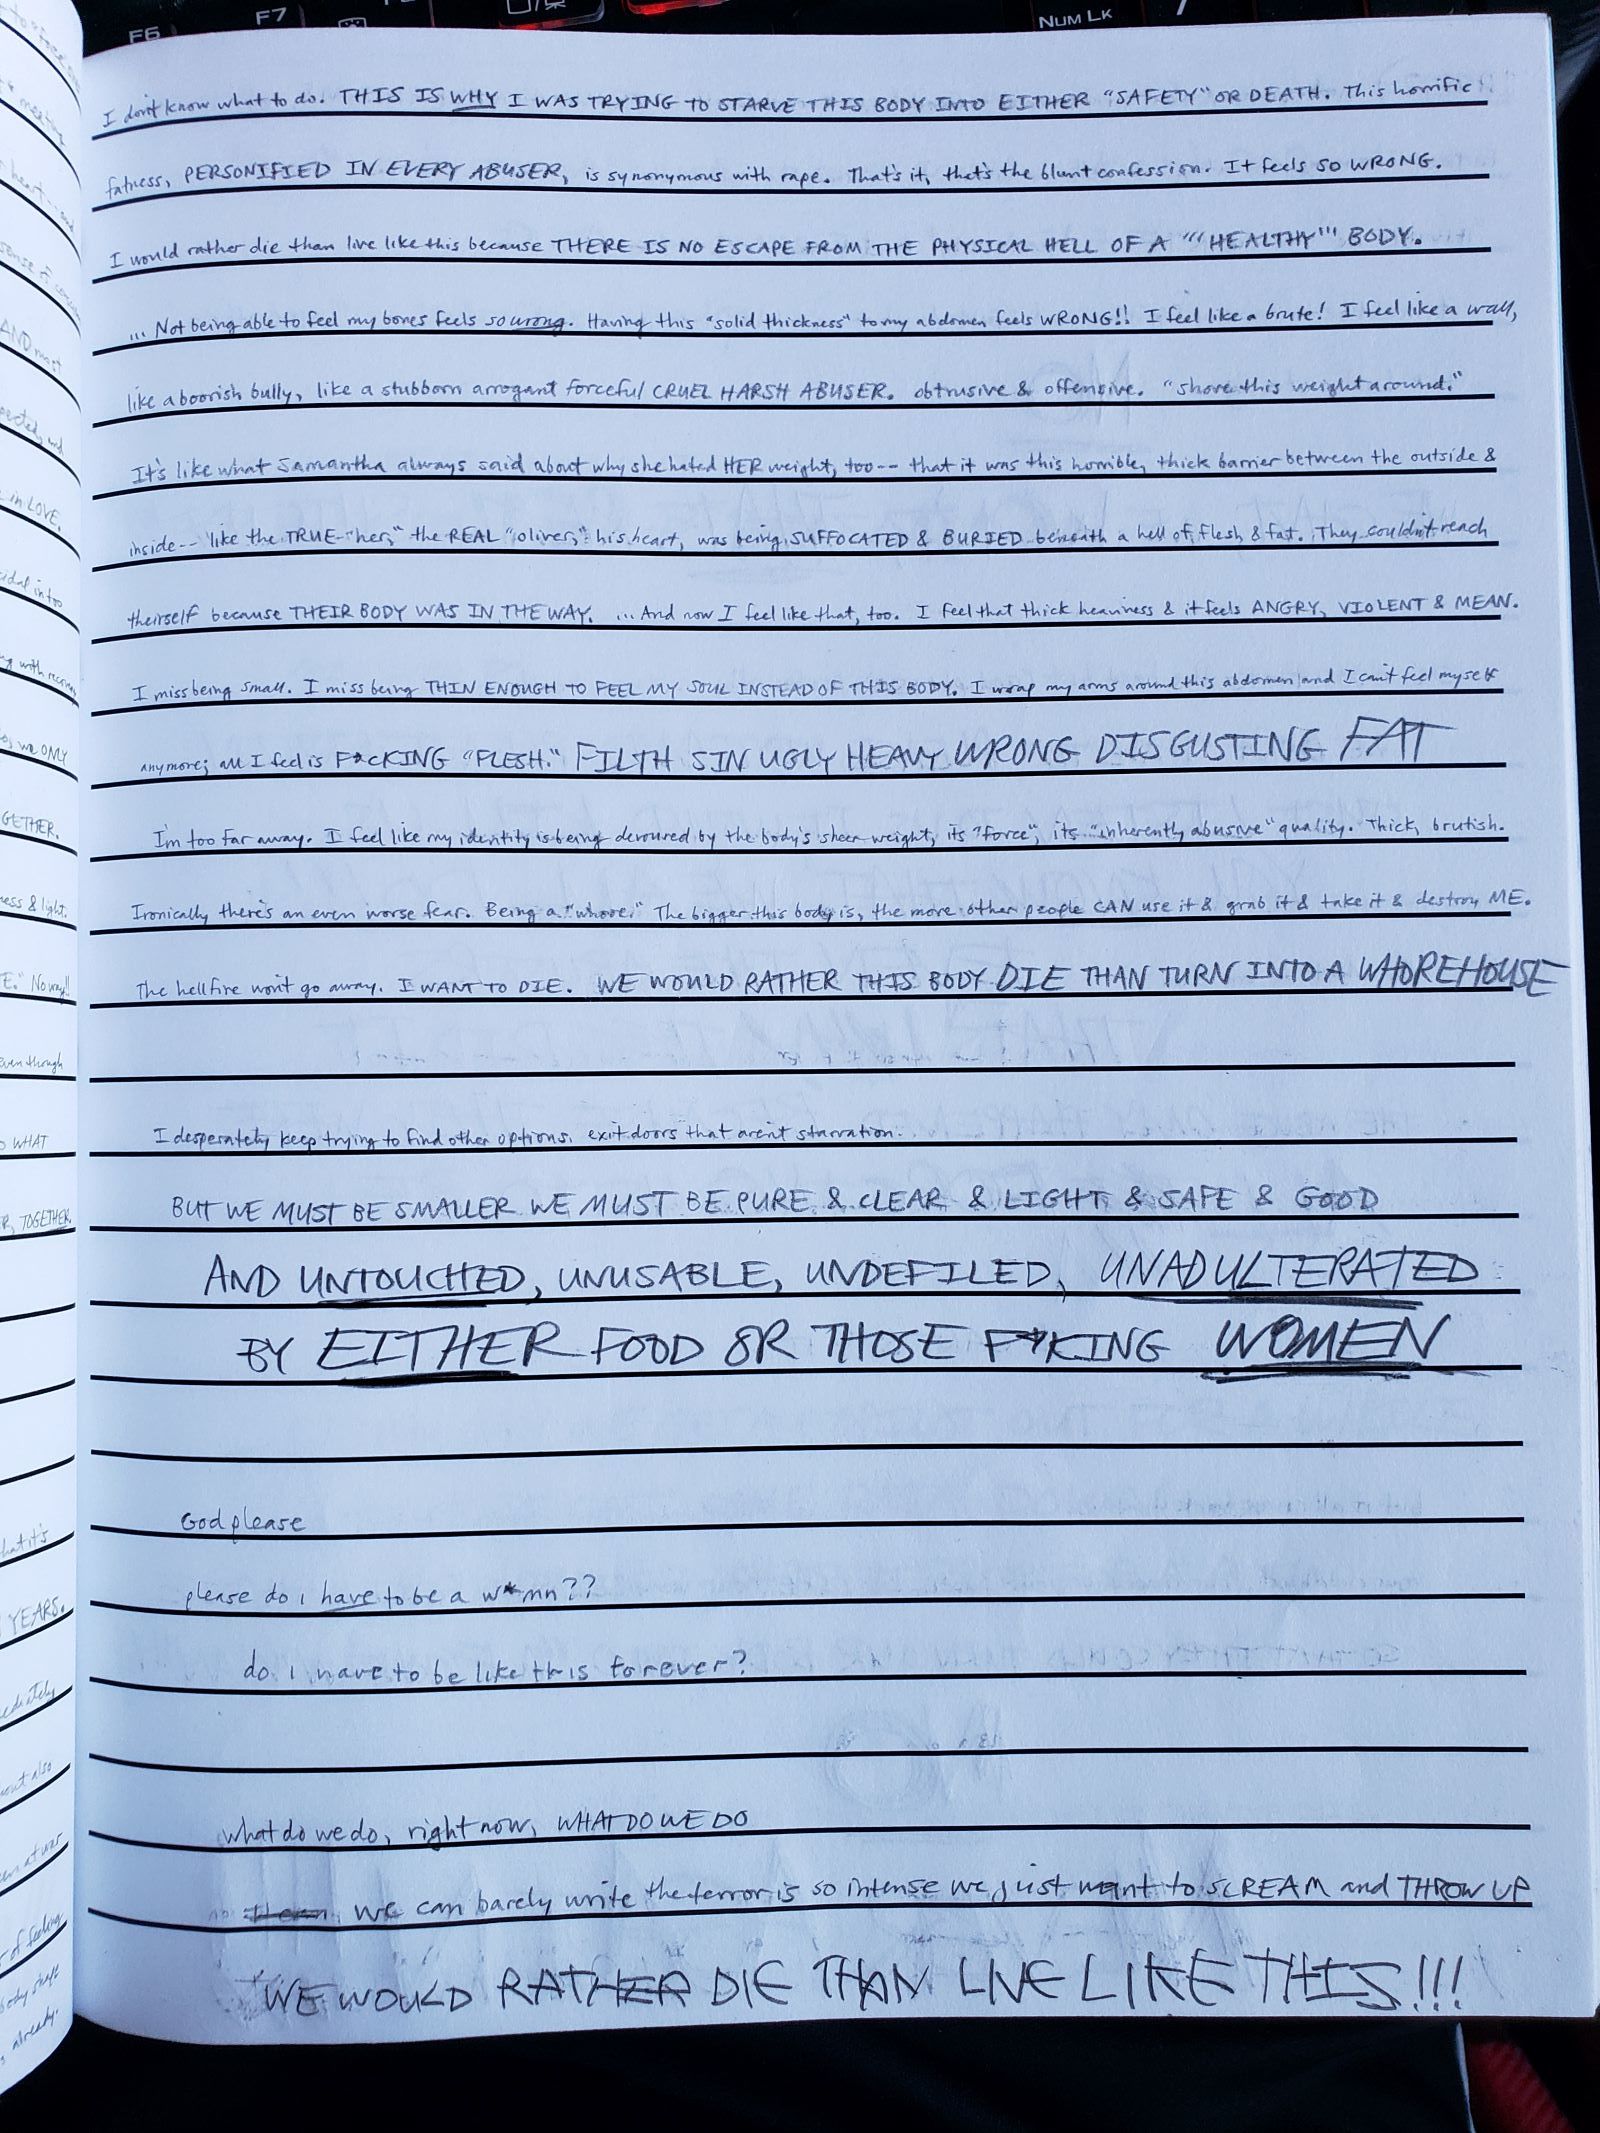 F6 F7 NUM LK 7
I don't know what to do. THIS IS WHY I WAS TRYING TO STARVE THIS BODY INTO EITHER "SAFETY" OR DEATH. This horrific
fatness, PERSONIFIED IN EVERY ABUSER, is synonymous with rape. That's it, that's the blunt confession. It feels SO WRONG.
I would rather die than live like this because THERE IS NO ESCAPE FROM THE PHYSICAL HELL OF A """HEALTHY""" BODY.
... Not being able to feel my bones feels so wrong. Having this "solid thickness" to my abdomen feels WRONG!! I feel like a brute! I feel like a wall,
like a boorish bully, like a stubborn arrogant forceful CRUEL HARSH ABUSER. obtrusive & offensive. "shove this weight around."
It's like what Samantha always said about why she hated HER weight, too-- that it was this horrible, thick barrier between the outside &
inside-- like the TRUE "her," the REAL "oliver," his heart, was being SUFFOCATED & BURIED beneath a hell of flesh & fat. They couldn't reach
theirself because THEIR BODY WAS IN THE WAY. ...And now I feel like that, too. I feel that thick heaviness & it feels ANGRY, VIOLENT & MEAN.
I miss being small. I miss being THIN ENOUGH TO FEEL MY SOUL INSTEAD OF THIS BODY. I wrap my arms around this abdomen and I can't feel myself
anymore; all I feel is F*CKING "FLESH." FILTH SIN UGLY HEAVY WRONG DISGUSTING FAT
I'm too far away. I feel like my identity is being devoured by the body's sheer weight, its "force", its "inherently abusive" quality. Thick, brutish.
Ironically there's an even worse fear. Being a "whore." The bigger this body is, the more other people CAN use it & grab it & take it & destroy ME.
The hellfire won't go away. I WANT TO DIE. WE WOULD RATHER THIS BODY DIE THAN TURN INTO A WHOREHOUSE
I desperately keep trying to find other options. exit doors that aren't starvation.
BUT WE MUST BE SMALLER WE MUST BE PURE & CLEAR & LIGHT & SAFE & GOOD
AND UNTOUCHED, UNUSABLE, UNDEFILED, UNADULTERATED
BY EITHER FOOD OR THOSE F*KING WOMEN
God please
please do i have to be a w*mn??
do i have to be like this forever?
what do we do, right now, WHAT DO WE DO
we can barely write the terror is so intense we just want to SCREAM and THROW UP
WE WOULD RATHER DIE THAN LIVE LIKE THIS!!!